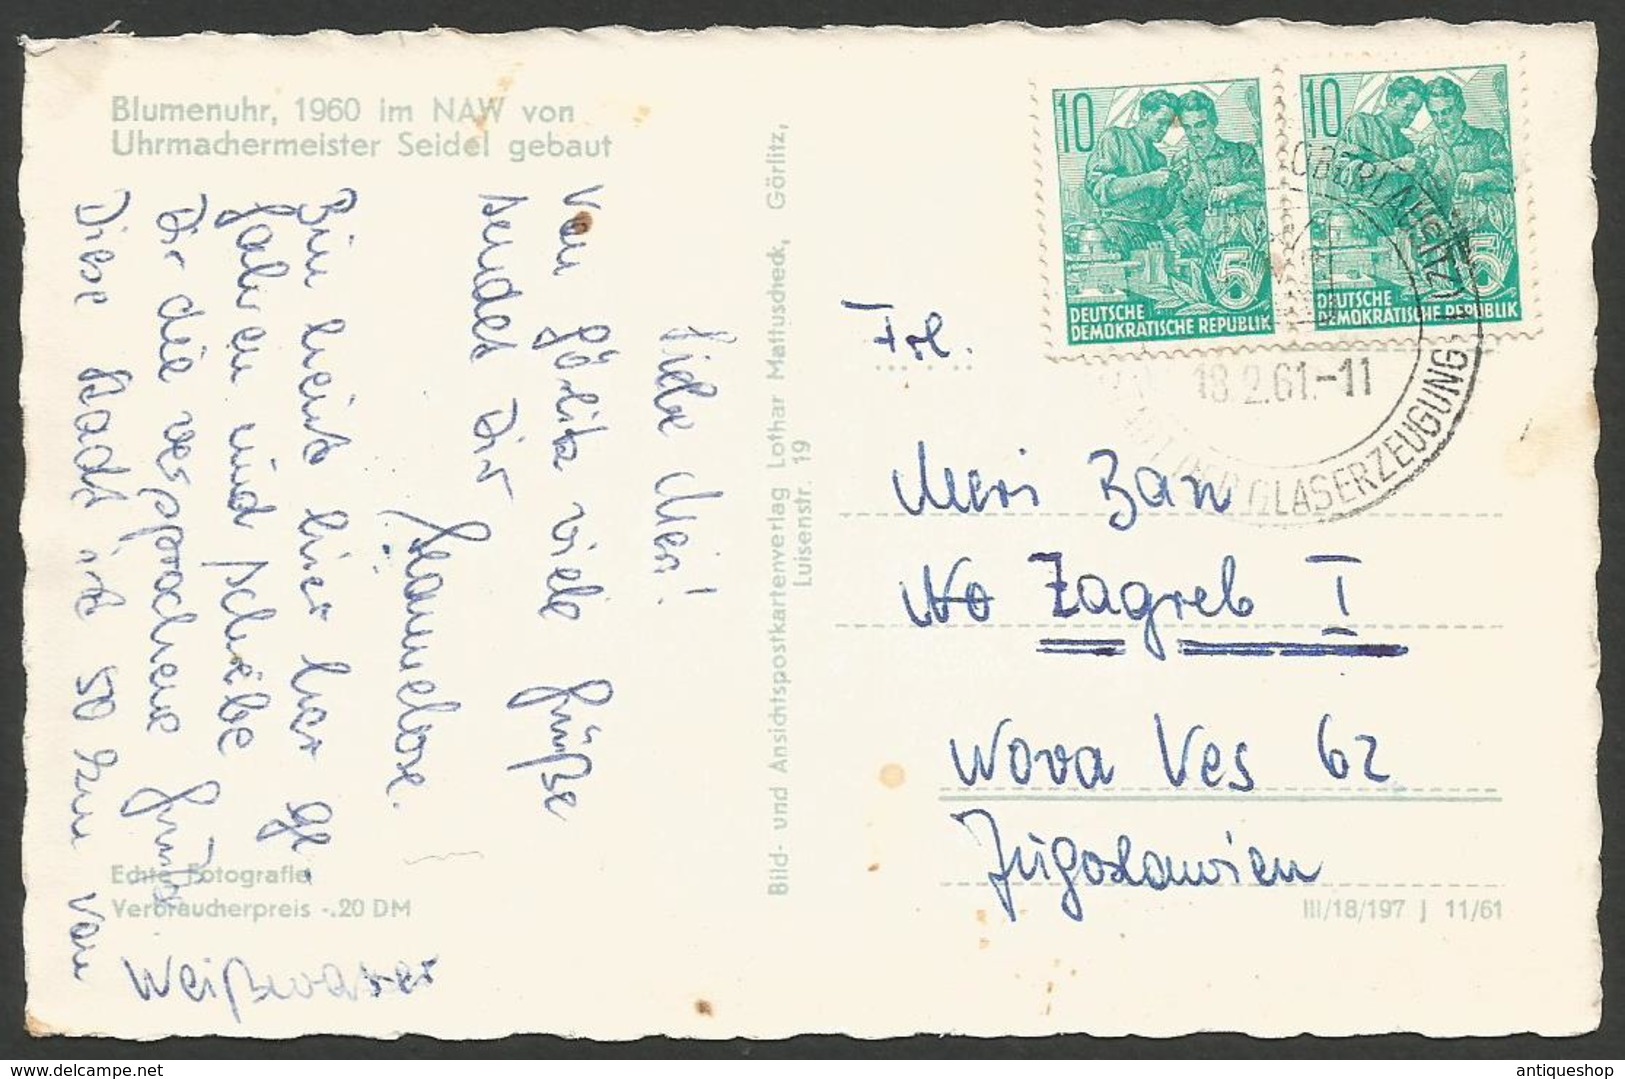 Blumenuhr, 1960 im NAW von
Uhrmachermeister Seidel gebaut
Liebe Meri!
Von Görlitz viele Grüße
sendet Dir
Hannelore.
Bin heut hier her ge-
fahren und schreibe
Dir die versprochene Grüße
Diese Stadt ist 50 km von
Weißwasser
Echte Fotografie
Verbraucherpreis -.20 DM
Bild- und Ansichtspostkartenverlag Lothar Mattuscheck, Görlitz,
Luisenstr. 19
10
5
DEUTSCHE
DEMOKRATISCHE REPUBLIK
10
5
DEUTSCHE
DEMOKRATISCHE REPUBLIK
(OBERLAUSITZ)
18.2.61.-11
DER GLASERZEUGUNG
Frl.
Meri Ban
No Zagreb I
Nova Ves 62
Jugoslawien
III/18/197 J 11/61
antiqueshop